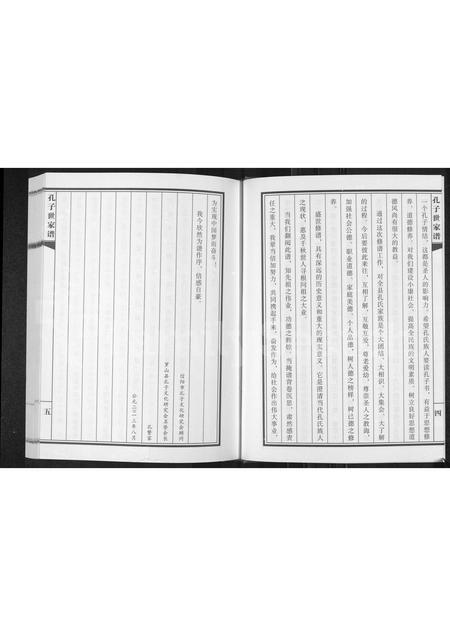 孔子世家谱
四
一个孔子情结，这都是圣人的影响力，希望孔氏族人要读孔子书，有益于思想修
养，道德修养，对我们建设小康社会，提高全民族的文明素质，树立良好思想道
德风尚有很大的教益。
通过这次修谱工作，对全县孔氏家族是个大团结、大相识、大集会、大了解
的过程，今后要彼此来往，互相了解，互敬互爱，尊老爱幼，尊崇圣人之教诲，
加强社会公德，职业道德，家庭美德，个人品德，树人德之榜样，树己德之修
养。
盛世修谱，具有深远的历史意义和重大的现实意义，它是澄清当代孔氏族人
之现状，惠及千秋世人寻根问祖之大业。
当我们翻阅此谱，知先祖之伟业，功德之辉煌，当掩谱背卷沉思，肃然感责
任之重大，我辈当倍加努力，共同携起手来，奋发作为，给社会作出伟大事业，
为实现中国梦而奋斗！
我今欣然为谱作序，倍感自豪。
信阳市孔子文化研究会顾问
罗山县孔子文化研究会名誉会长
孔繁富
公元二〇一三年八月
孔子世家谱
五